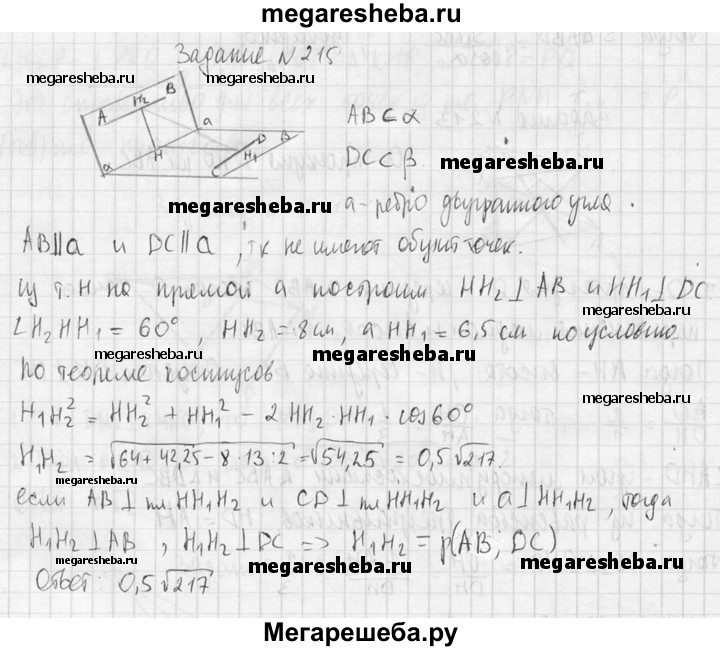 megaresheba.ru
Задание N 215
megaresheba.ru megaresheba.ru
A H₂ B a
AB⊂α
H D B H₁ C
a
DC⊂β megaresheba.ru
megaresheba.ru
a - ребро двугранного угла.
AB||a и DC||a, тк не имеют общих точек.
из т. H на прямой a построим HH₂⊥AB и HH₁⊥DC.
megaresheba.ru
∠H₂HH₁ = 60°, HH₂ = 8 см, а HH₁ = 6,5 см по условию.
megaresheba.ru megaresheba.ru
По теореме косинусов
H₁H₂² = HH₂² + HH₁² - 2HH₂·HH₁·cos60°
H₁H₂ = √64+42,25-8·13:2 = √54,25 = 0,5√217.
megaresheba.ru megaresheba.ru
если AB⊥пл.HH₁H₂ и CD⊥пл.HH₁H₂ и a⊥HH₁H₂, тогда
H₁H₂⊥AB, H₁H₂⊥DC => H₁H₂ = ρ(AB; DC)
megaresheba.ru megaresheba.ru
Ответ: 0,5√217
Мегарешеба.ру